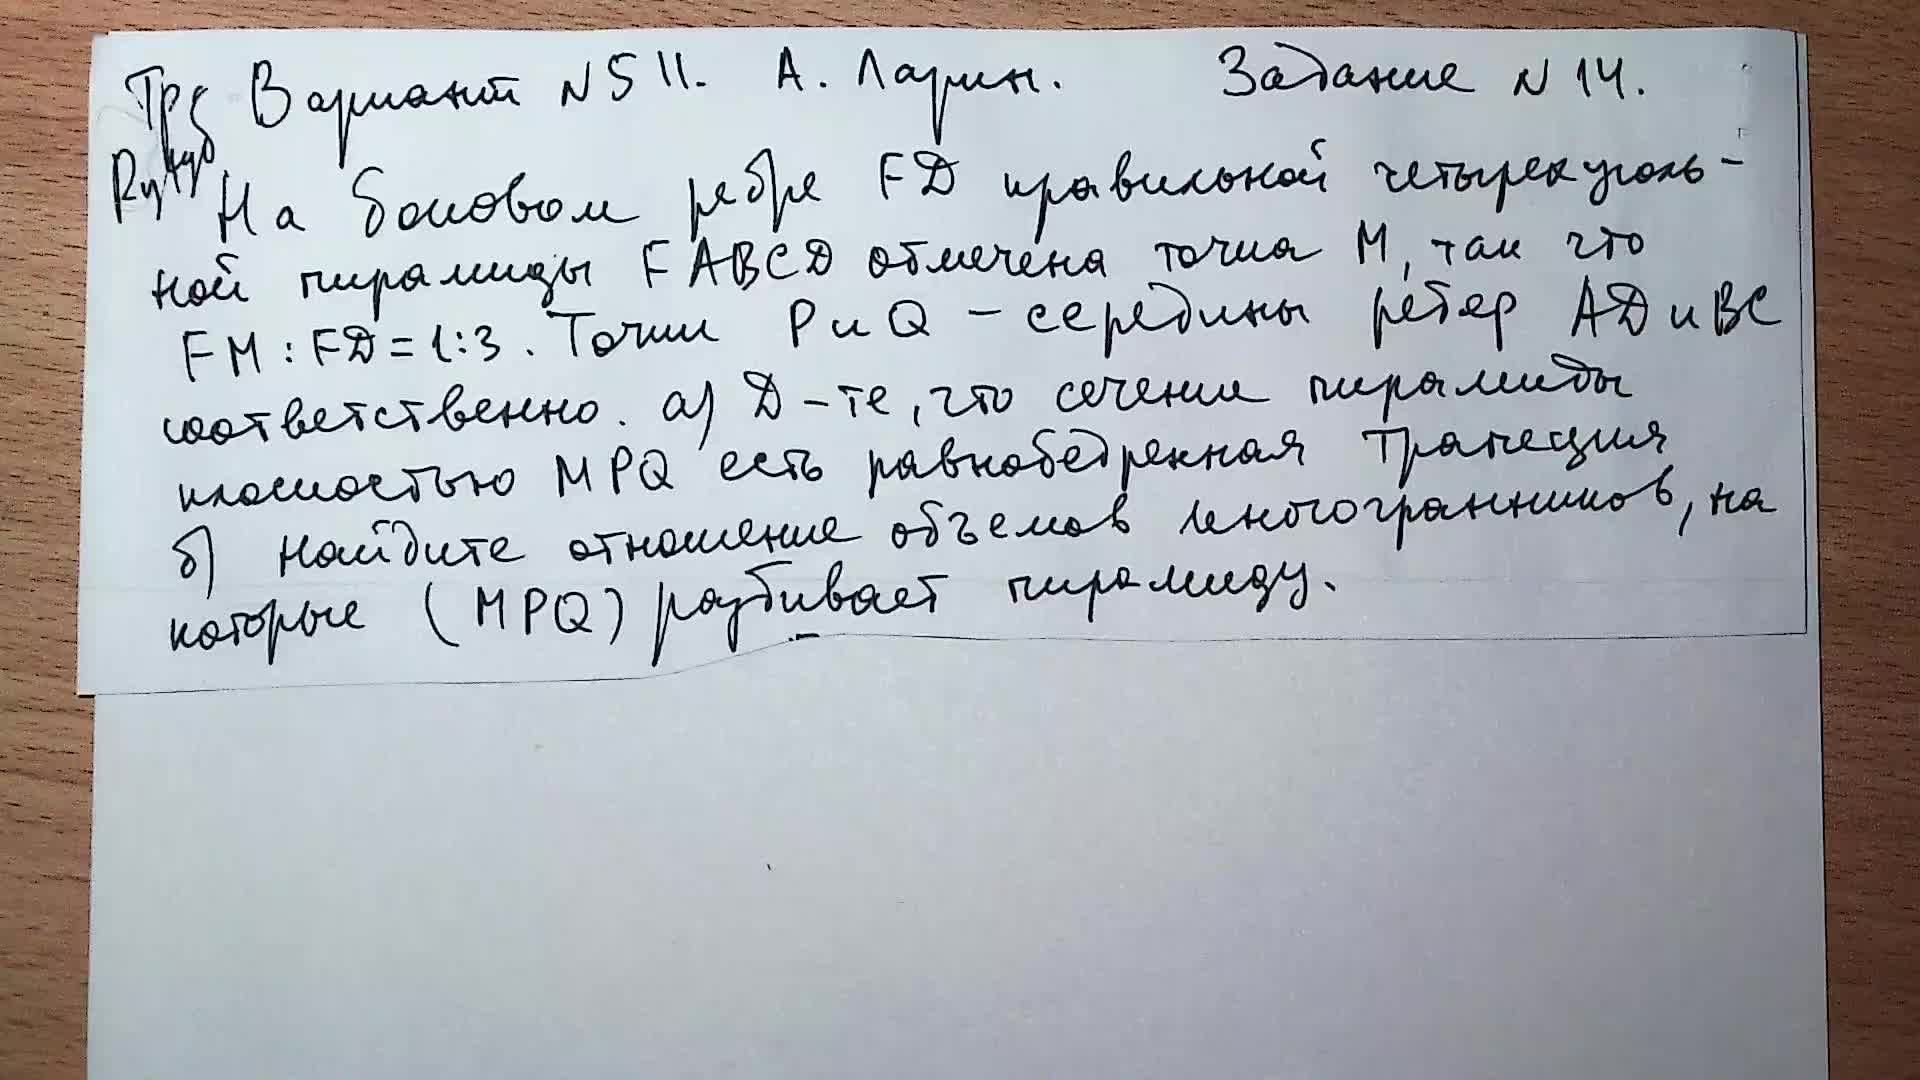 Вариант N 511. А. Ларин. Задание N 14.
Rутуб
На боковом ребре FD правильной четырехуголь-
ной пирамиды FABCD отмечена точка M, так что
FM : FD = 1:3. Точки P и Q - середины ребер AD и BC
соответственно. а) Д-те, что сечение пирамиды
плоскостью MPQ есть равнобедренная трапеция
б) Найдите отношение объемов многогранников, на
которые (MPQ) разбивает пирамиду.